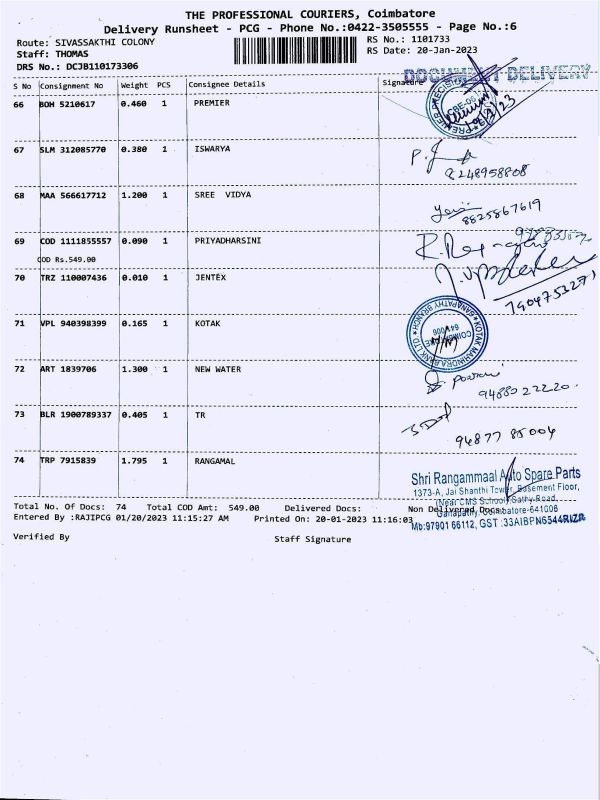 THE PROFESSIONAL COURIERS, Coimbatore
Delivery Runsheet - PCG - Phone No.:0422-3505555 - Page No.:6
Route: SIVASSAKTHI COLONY
RS No.: 1101733
Staff: THOMAS
RS Date: 20-Jan-2023
DRS No.: DCJB110173306
DOCUMENT DELIVERY
S No Consignment No Weight PCS Consignee Details Signature
66 BOH 5210617 0.460 1 PREMIER
67 SLM 312085770 0.380 1 ISWARYA
9248958808
68 MAA 566617712 1.200 1 SREE VIDYA
8825867619
69 COD 1111855557 0.090 1 PRIYADHARSINI
COD Rs.549.00
70 TRZ 110007436 0.010 1 JENTEX
7904753271
71 VPL 940398399 0.165 1 KOTAK
KOTAK MAHINDRA BANK LTD. GANAPATHY BRANCH
COIMBATORE
641006
72 ART 1839706 1.300 1 NEW WATER
9488022220
73 BLR 1900789337 0.405 1 TR
94877 85004
74 TRP 7915839 1.795 1 RANGAMAL
Shri Rangammaal Auto Spare Parts
1373-A, Jai Shanthi Tower, Basement Floor,
(Near CMS School) Sathy Road,
Ganapathy, Coimbatore-641006
Mb:97901 66112, GST :33AIBPN6544R1ZR
Total No. Of Docs: 74 Total COD Amt: 549.00 Delivered Docs: Non Delivered Docs:
Entered By :RAJIPCG 01/20/2023 11:15:27 AM Printed On: 20-01-2023 11:16:03
Verified By Staff Signature